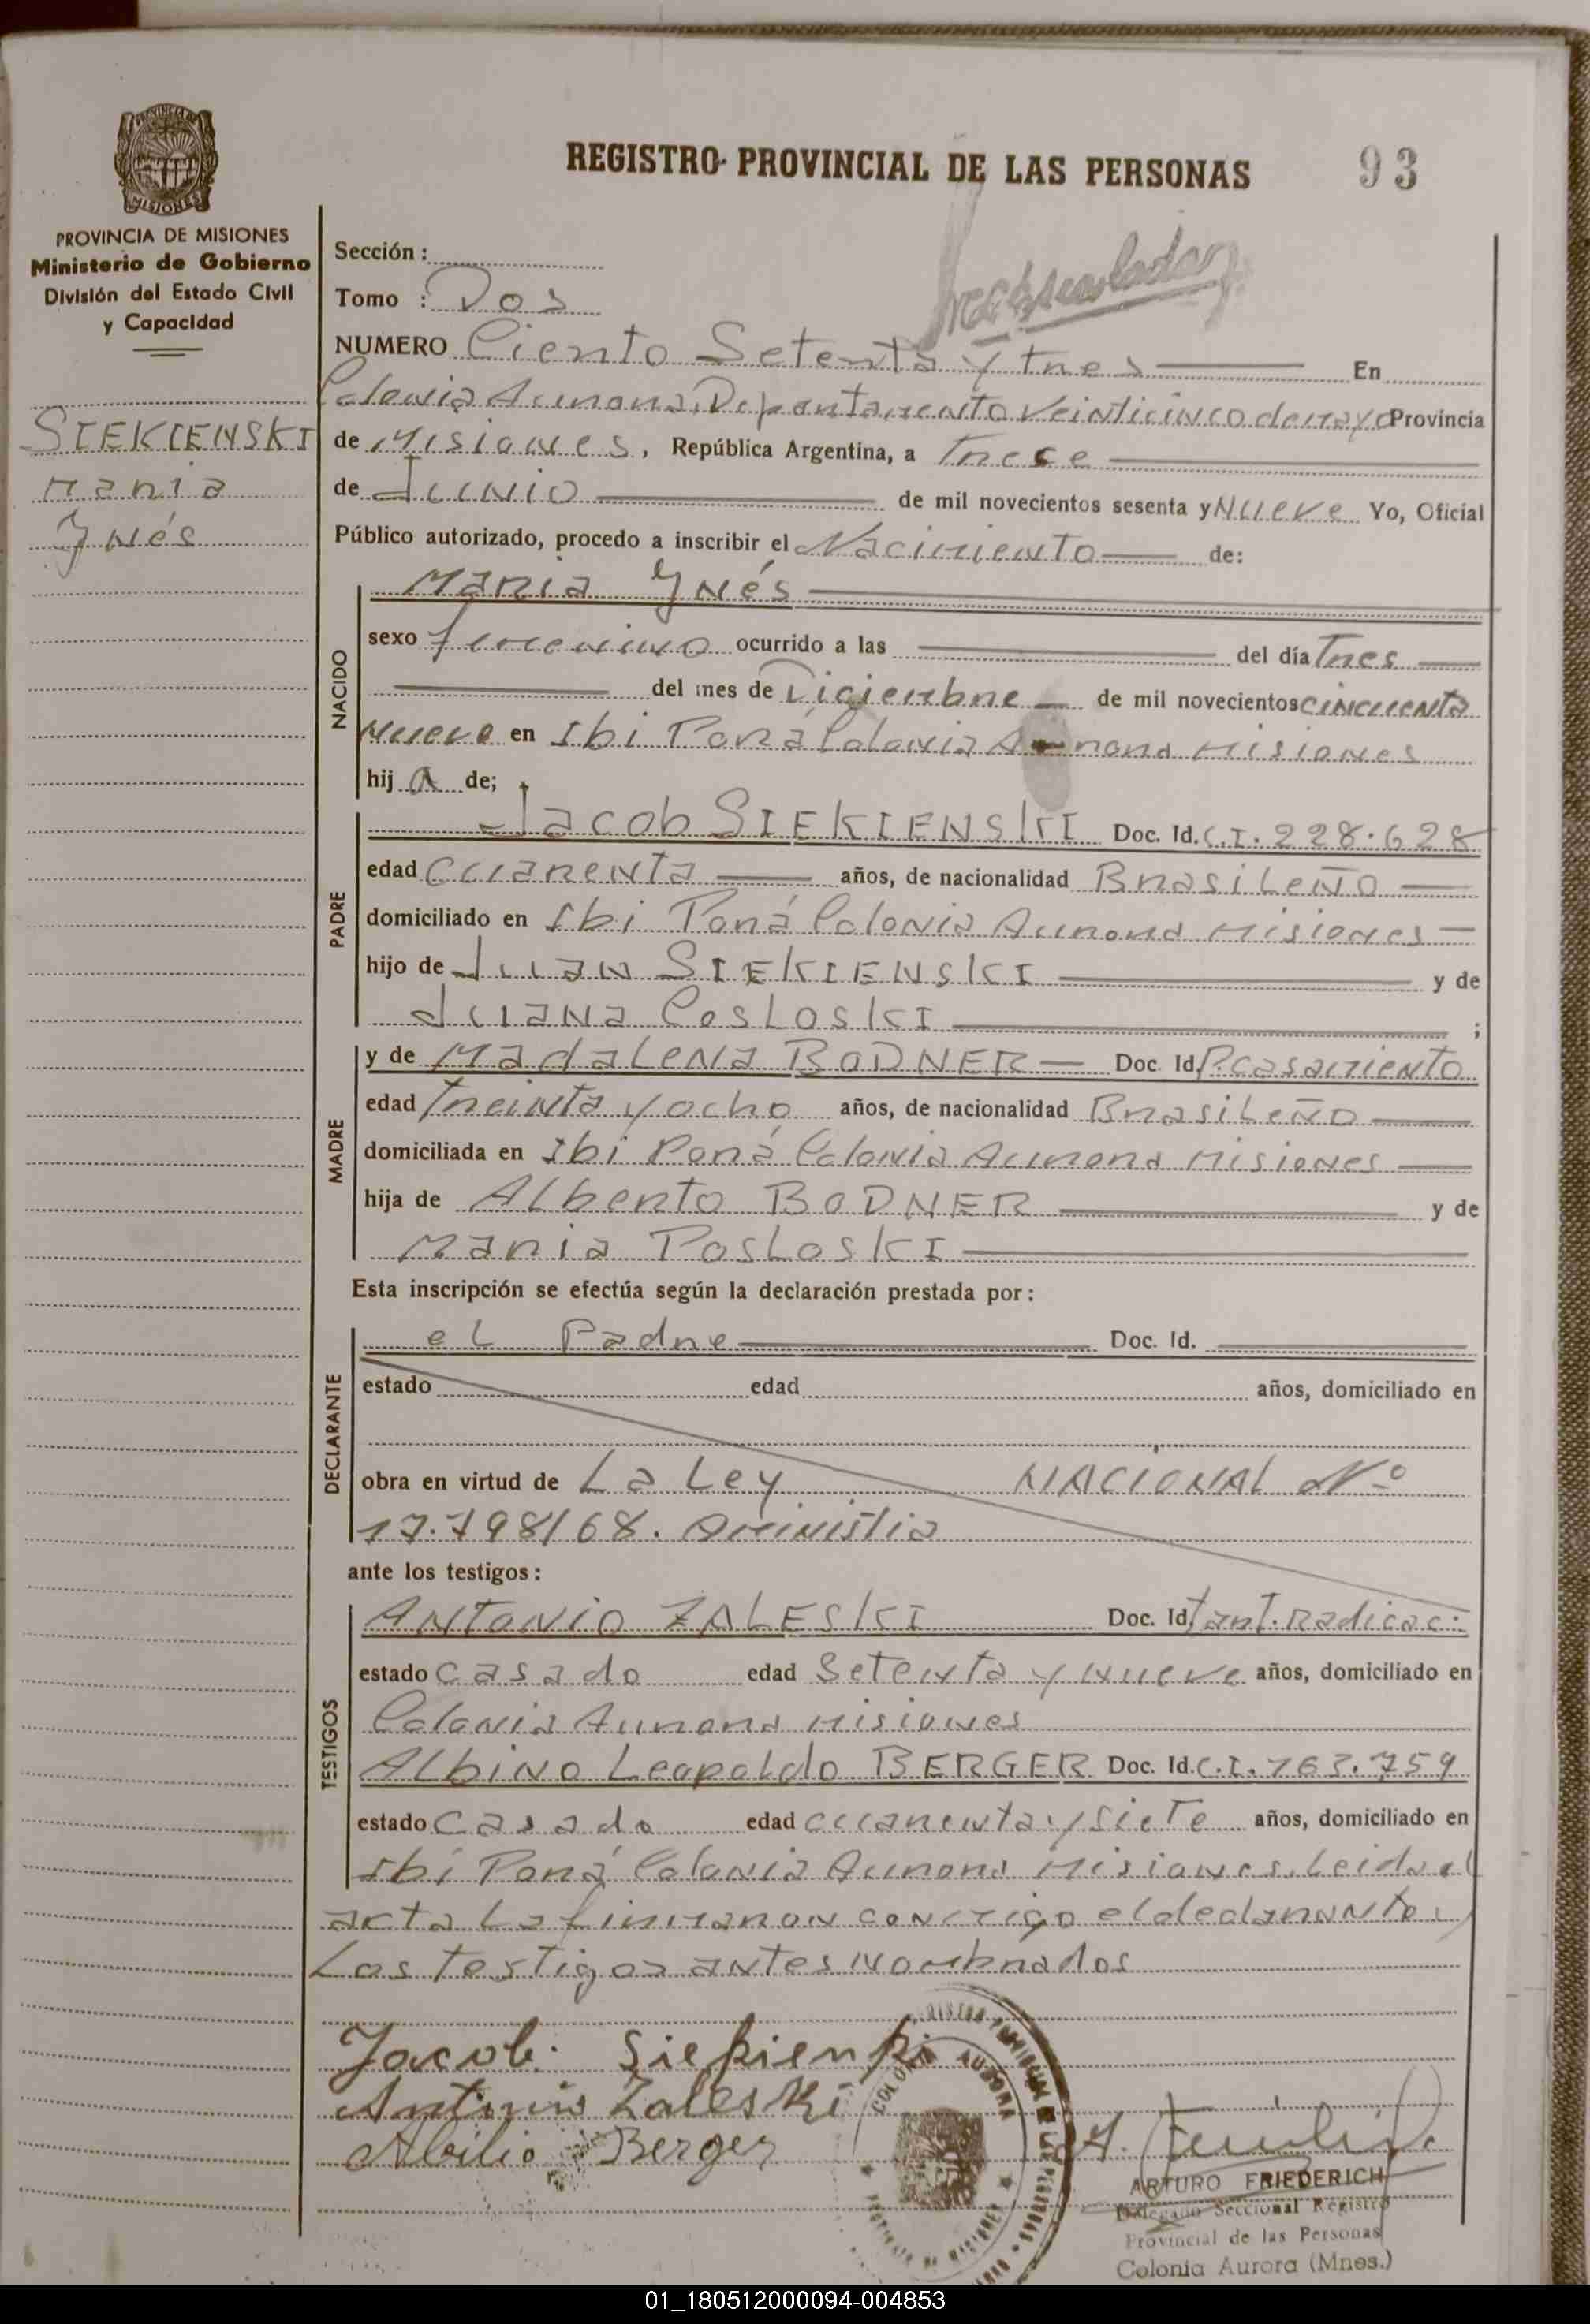 REGISTRO PROVINCIAL DE LAS PERSONAS 93
PROVINCIA DE MISIONES
Ministerio de Gobierno
División del Estado Civil
y Capacidad
SIEKIENSKI
Maria
Ynés
Sección :
Tomo : Dos
NUMERO Ciento Setenta y tres En
Colonia Aurora, Departamento Veinticinco de mayo Provincia
de Misiones, República Argentina, a Trece
de Junio de mil novecientos sesenta y Nueve Yo, Oficial
Público autorizado, procedo a inscribir el Nacimiento de:
NACIDO
Maria Ynés
sexo femenino ocurrido a las del día Tres
del mes de Diciembre de mil novecientos cincuenta
Nueve en Ibi Porá Colonia Aurora Misiones
hij a de;
PADRE
Jacob SIEKIENSKI Doc. Id. C.I. 228.628
edad Cuarenta años, de nacionalidad Brasileño
domiciliado en Ibi Porá Colonia Aurora Misiones
hijo de Juan SIEKIENSKI y de
Juana Cosloski ;
MADRE
y de Madalena BODNER Doc. Id. P. casamiento
edad Treinta y ocho años, de nacionalidad Brasileño
domiciliada en Ibi Porá Colonia Aurora Misiones
hija de Alberto BODNER y de
Maria Posloski
Esta inscripción se efectúa según la declaración prestada por :
DECLARANTE
el Padre Doc. Id.
estado edad años, domiciliado en
obra en virtud de La Ley NACIONAL Nº
17.798/68. Aministia
ante los testigos :
TESTIGOS
ANTONIO ZALESKI Doc. Id. Tarj. Radicac:
estado Casado edad Setenta y nueve años, domiciliado en
Colonia Aurora Misiones
Albino Leopoldo BERGER Doc. Id. C.I. 163.759
estado Casado edad cuarenta y siete años, domiciliado en
Ibi Porá Colonia Aurora Misiones. Leida el
acta La firmaron conmigo el declarante y
Los testigos antes Nombrados
Jacob. Siekienski
Antonio Zaleski
Abilio Berger
COLONIA AURORA
ARTURO FRIEDERICH
Delegado Seccional Registro
Provincial de las Personas
Colonia Aurora (Mnes.)
01_180512000094-004853